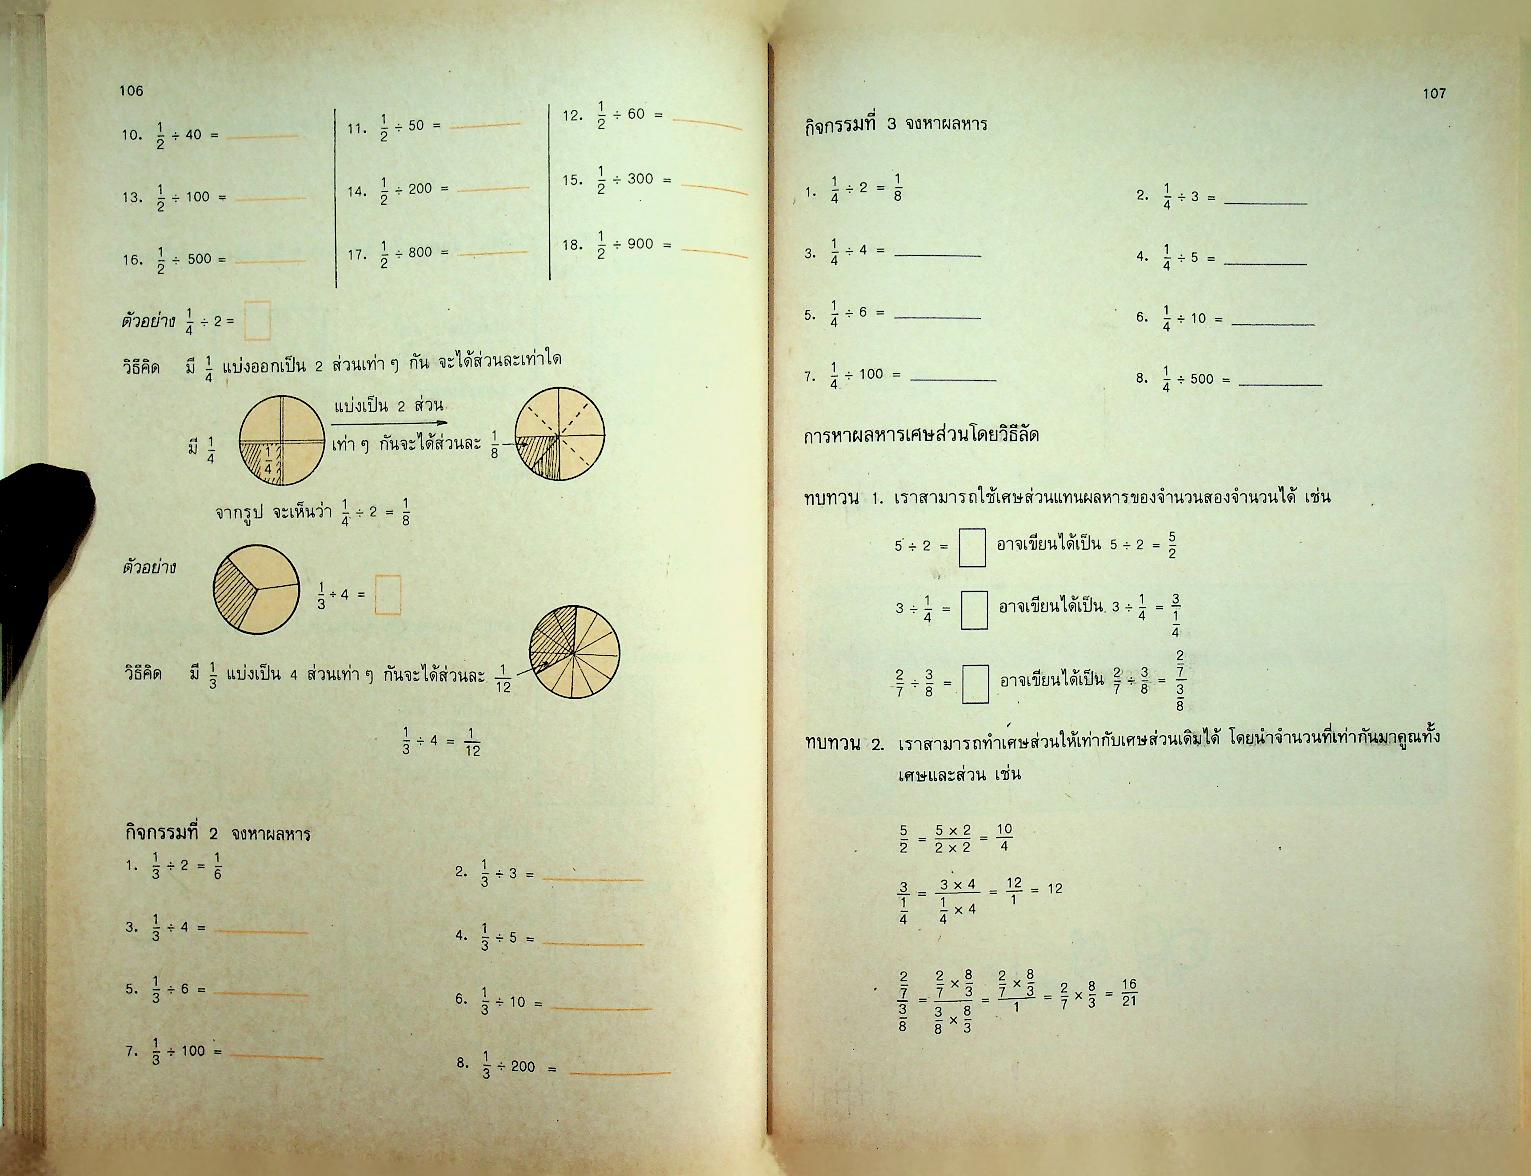 106
10. 1/2 ÷ 40 = ____ 11. 1/2 ÷ 50 = ____ 12. 1/2 ÷ 60 = ____
13. 1/2 ÷ 100 = ____ 14. 1/2 ÷ 200 = ____ 15. 1/2 ÷ 300 = ____
16. 1/2 ÷ 500 = ____ 17. 1/2 ÷ 800 = ____ 18. 1/2 ÷ 900 = ____
ตัวอย่าง 1/4 ÷ 2 = □
วิธีคิด มี 1/4 แบ่งออกเป็น 2 ส่วนเท่า ๆ กัน จะได้ส่วนละเท่าใด
แบ่งเป็น 2 ส่วน
มี 1/4 1/4 เท่า ๆ กันจะได้ส่วนละ 1/8
จากรูป จะเห็นว่า 1/4 ÷ 2 = 1/8
ตัวอย่าง 1/3 ÷ 4 = □
วิธีคิด มี 1/3 แบ่งเป็น 4 ส่วนเท่า ๆ กันจะได้ส่วนละ 1/12
1/3 ÷ 4 = 1/12
กิจกรรมที่ 2 จงหาผลหาร
1. 1/3 ÷ 2 = 1/6 2. 1/3 ÷ 3 = ____
3. 1/3 ÷ 4 = ____ 4. 1/3 ÷ 5 = ____
5. 1/3 ÷ 6 = ____ 6. 1/3 ÷ 10 = ____
7. 1/3 ÷ 100 = ____ 8. 1/3 ÷ 200 = ____
107
กิจกรรมที่ 3 จงหาผลหาร
1. 1/4 ÷ 2 = 1/8 2. 1/4 ÷ 3 = ____
3. 1/4 ÷ 4 = ____ 4. 1/4 ÷ 5 = ____
5. 1/4 ÷ 6 = ____ 6. 1/4 ÷ 10 = ____
7. 1/4 ÷ 100 = ____ 8. 1/4 ÷ 500 = ____
การหาผลหารเศษส่วนโดยวิธีลัด
ทบทวน 1. เราสามารถใช้เศษส่วนแทนผลหารของจำนวนสองจำนวนได้ เช่น
5 ÷ 2 = □ อาจเขียนได้เป็น 5 ÷ 2 = 5/2
3 ÷ 1/4 = □ อาจเขียนได้เป็น 3 ÷ 1/4 = 3/(1/4)
2/7 ÷ 3/8 = □ อาจเขียนได้เป็น 2/7 ÷ 3/8 = (2/7)/(3/8)
ทบทวน 2. เราสามารถทำเศษส่วนให้เท่ากับเศษส่วนเดิมได้ โดยนำจำนวนที่เท่ากันมาคูณทั้ง
เศษและส่วน เช่น
5/2 = (5 × 2)/(2 × 2) = 10/4
3/(1/4) = (3 × 4)/(1/4 × 4) = 12/1 = 12
(2/7)/(3/8) = (2/7 × 8/3)/(3/8 × 8/3) = (2/7 × 8/3)/1 = 2/7 × 8/3 = 16/21